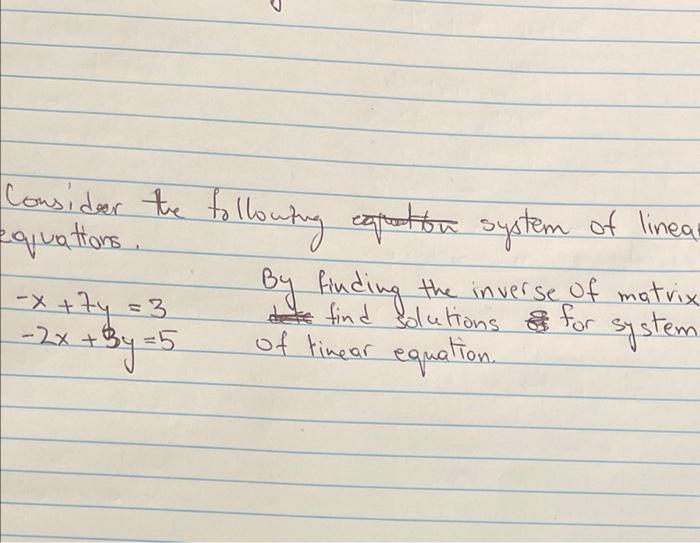 Consider the following equation system of linear
equations.
By finding the inverse of matrix
-x + 7y = 3
find solutions for system
-2x + 3y = 5
of linear equation.